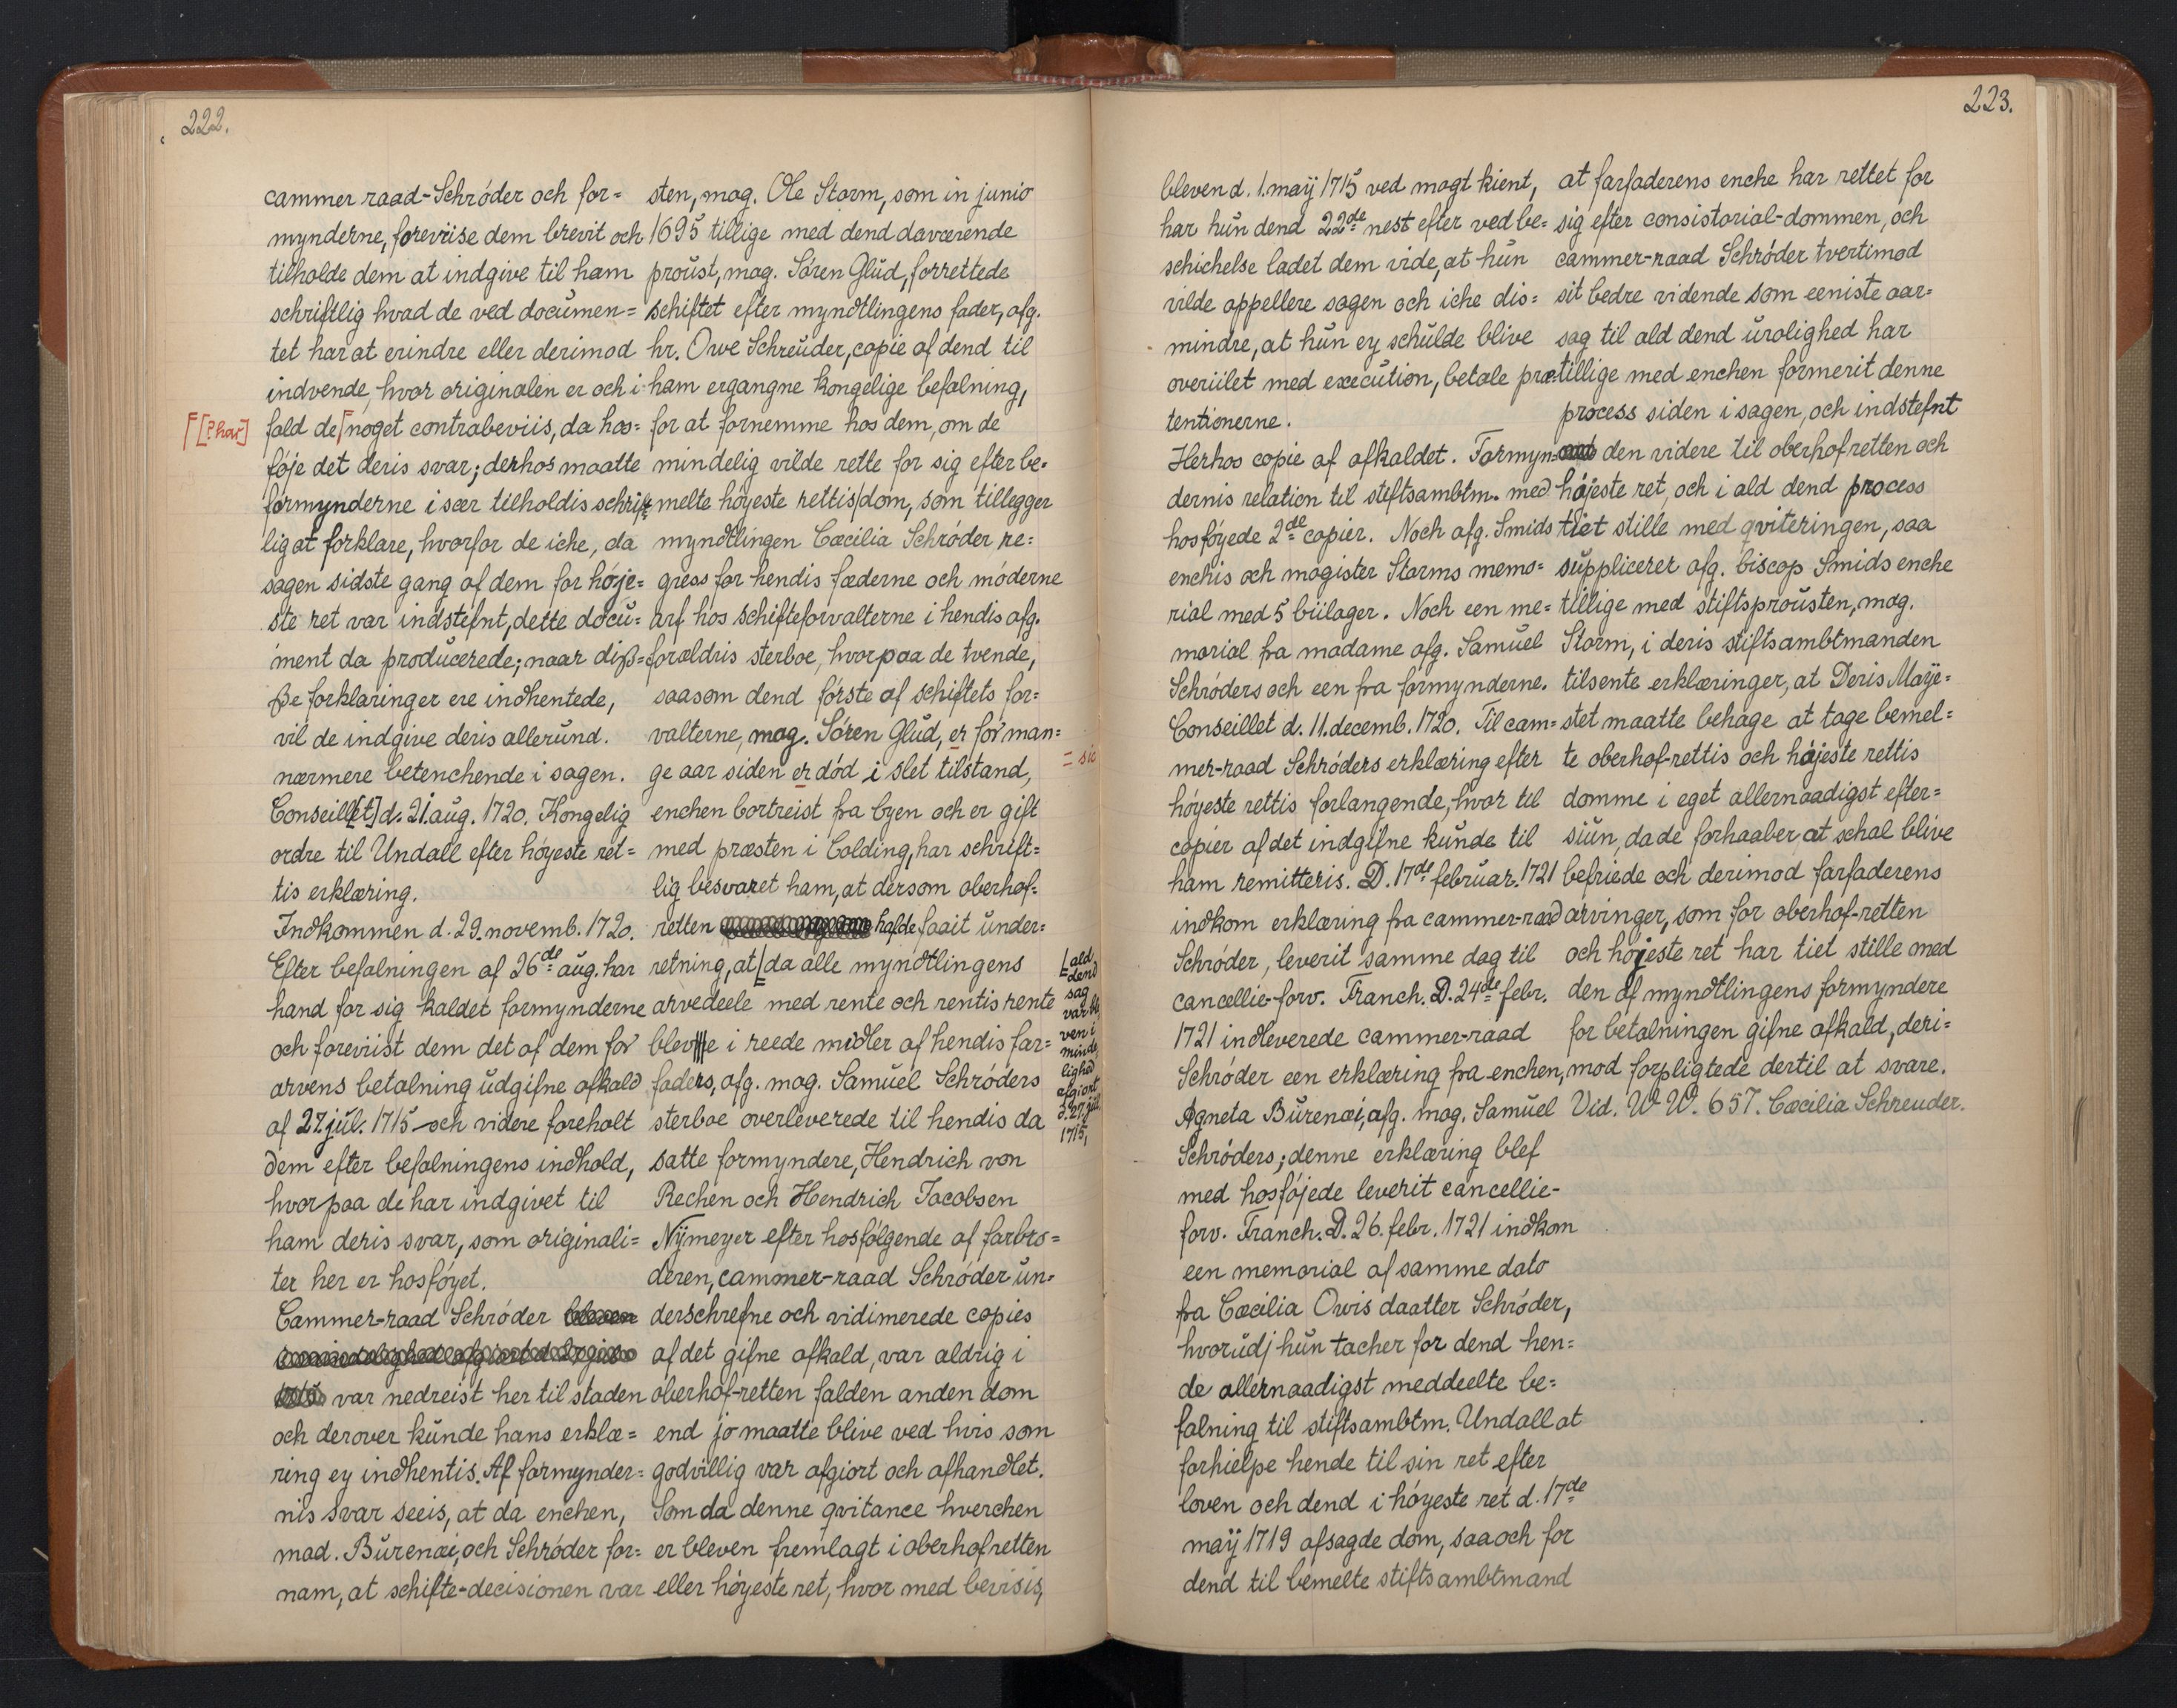 222.
cammer raad-Schröder och for=
mynderne, forevüse dem brevit och
tilholde dem at indgive til ham
schriftlig hvad de ved documen=
tet har at erindre eller derimod
indvende, hvor originalen er och i
fald de ⌈noget contrabeviis, da hos=
⌈[?har]
föje det deris svar; derhos maatte
formynderne i sær tilholdis schrift=
lig at forklare, hvorfor de iche, da
sagen sidste gang af dem for höje=
ste ret var indstefnt, dette docu=
ment da producerede; naar diß=
ße forklaringer ere indhentede,
vil de indgive deris allerund.
nærmere betenchende i sagen.
Conseill[et] d. 21. aug. 1720. Kongelig
ordre til Undall efter höyeste ret=
tis erklæring.
Indkommen d. 29. novemb. 1720.
Efter befalningen af 26de aug. har
hand for sig kaldet formynderne
och foreviist dem det af dem for
arvens betalning udgifne afkald
af 27. jul. 1715 och videre foreholt
dem efter befalningens indhold,
hvorpaa de har indgivet til
ham deris svar, som originali=
ter her er hosföyet.
Cammer-raad Schröder
var nedreist her til staden
och derover kunde hans erklæ=
ring ey indhentis. Af formynder=
nis svar seeis, at da enchen,
mad. Burenæi, och Schröder for=
nam, at schifte-decisionen var
sten, mag. Ole Storm, som in junio
1695 tillige med dend daværende
proust, mag. Sören Glud, forrettede
schiftet efter myndtlingens fader, afg.
hr. Owe Schreuder, copie af dend til
ham ergangne kongelige befalning,
for at fornemme hos dem, om de
mindelig vilde rette for sig efter be=
melte höyeste rettis dom, som tillegger
myndtlingen Cæcilia Schröder re=
gress for hendis fæderne och möderne
arf hos schifteforvalterne i hendis afg.
forældris sterboe, hvorpaa de tvende,
saasom dend förste af schiftets for=
valterne, mag. Sören Glud, er for man=
ge aar siden er död i slet tilstand,
= sic
enchen bortreist fra byen och er gift
med præsten i Colding, har schrift=
lig besvaret ham, at dersom oberhof=
retten hafde faait under=
retning, at ⌊da alle myndtlingens
⌊ald
dend
sag
var ble
ven i
minde
lighed
afgiort
d. 27. jul.
1715,
arvedeele med rente och rentis rente
bleve i reede midler af hendis far=
faders, afg. mag. Samuel Schröders
sterboe overleverede til hendis da
satte formyndere, Hendrich von
Rechen och Hendrich Jacobsen
Nÿmeyer efter hosfölgende af farbro=
deren, cammer-raad Schröder un=
derschrefne och vidimerede copies
af det gifne afkald, var aldrig i
oberhof-retten falden anden dom
end jo maatte blive ved hvis som
godvillig var afgiort och afhandlet.
Som da denne qvitance hverchen
er bleven fremlagt i oberhofretten
eller höyeste ret, hvor med bevisis,
223.
bleven d. 1. maÿ 1715 ved magt kient,
har hun dend 22de nest efter ved be=
schichelse ladet dem vide, at hun
vilde appellere sagen och iche dis=
mindre, at hun ey schulde blive
overiilet med execution, betale præ=
tentionerne.
Herhos copie af afkaldet. Formyn=
dernis relation til steftsambtm. med
hosföyede 2de copier. Noch afg. Smids
enchis och magister Storms memo=
rial med 5 biilager. Noch een me=
morial fra madame afg. Samuel
Schröders och een fra formynderne.
Conseillet d. 11. decemb. 1720. Til cam=
mer-raad Schröders erklæring efter
höyeste rettis forlangende, hvor til
copier af det indgifne kunde til
ham remitteris. D. 17de februar. 1721
indkom erklæring fra cammer-raad
Schröder, leverit samme dag til
cancellie-forv. Franch. D. 24de febr.
1721 indleverede cammer-raad
Schröder een erklæring fra enchen,
Agneta Burenæi, afg. mag. Samuel
Schröders; denne erklæring blef
med hosföjede leverit cancellie-
forv. Franch. D. 26. febr. 1721 indkom
een memorial af samme dato
fra Cæcilia Owis daatter Schröder,
hvorudj hun tacher for dend hen=
de allernaadigst meddeelte be=
falning til stiftsambtm. Undall at
forhielpe hende til sin ret efter
loven och dend i höyeste ret d. 17de
maÿ 1719 afsagde dom, saa och for
dend til bemelte stiftsambtmand
at farfaderens enche har rettet for
sig efter consistorial-dommen, och
cammer-raad Schröder tvertimod
sit bedre vidende som eeniste aar=
sag til ald dend urolighed har
tillige med enchen formerit denne
process siden i sagen, och indstefnt
den videre til oberhofretten och
höjeste ret, och i ald dend process
tiet stille med qviteringen, saa
supplicerer afg. biscop Smids enche
tillige med stiftsprousten, mag.
Storm, i deris stiftsambtmanden
tilsente erklæringer, at Deris Maÿe=
stet maatte behage at tage bemel=
te oberhof-rettis och höjeste rettis
domme i eget allernaadigst efter=
siun, da de forhaaber at schal blive
befriede och derimod farfaderens
arvinger, som for oberhof-retten
och höjeste ret har tiet stille med
den af myndtlingens formyndere
for betalningen gifne afkald, deri=
mod forpligtede dertil at svare.
Vid. W W. 657. Cæcilia Schreuder.